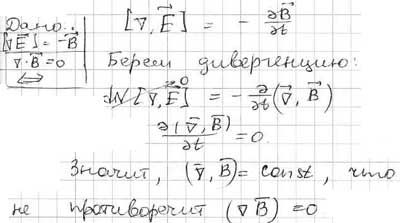 Дано:
[∇E⃗] = -B⃗̇
∇·B⃗ = 0
⟺
[∇⃗, E⃗] = - ∂B⃗/∂t
Берем дивергенцию:
div [∇, E⃗] = 0 = - ∂/∂t (∇⃗, B⃗)
∂(∇⃗, B⃗)/∂t = 0.
Значит, (∇⃗, B⃗) = const, что
не противоречит (∇ B⃗) = 0